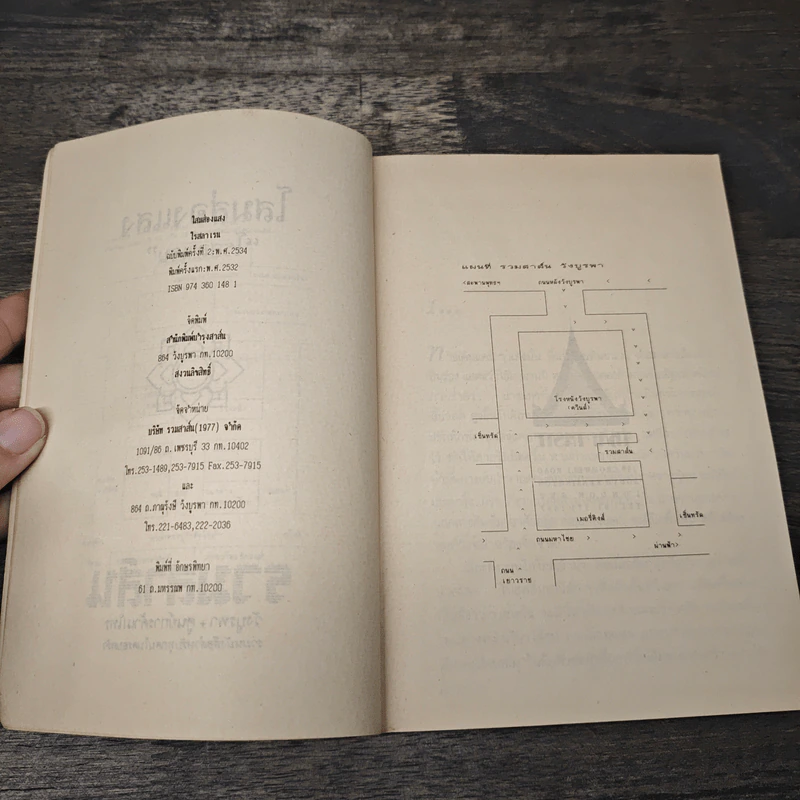 โสมส่องแสง
โรสลาเรน
ฉบับพิมพ์ครั้งที่ 2:พ.ศ.2534
พิมพ์ครั้งแรก:พ.ศ.2532
ISBN 974 360 148 1
จัดพิมพ์
สำนักพิมพ์บำรุงสาส์น
864 วังบูรพา กท.10200
สงวนลิขสิทธิ์
จัดจำหน่าย
บริษัท รวมสาส์น(1977) จำกัด
1091/86 ถ.เพชรบุรี 33 กท.10402
โทร.253-1489,253-7915 Fax.253-7915
และ
864 ถ.ภาณุรังษี วังบูรพา กท.10200
โทร.221-6483,222-2036
พิมพ์ที่ อักษรพิทยา
61 ถ.มหรรณพ กท.10200
แผนที่ รวมสาส์น วังบูรพา
<สะพานพุทธฯ ถนนหลังวังบูรพา < <
โรงหนังวังบูรพา
(ควีนส์)
เซ็นทรัล
รวมสาส์น
เมอรี่คิงส์
เซ็นทรัล
ถนนมหาไชย
ผ่านฟ้า>
ถนน
เยาวราช